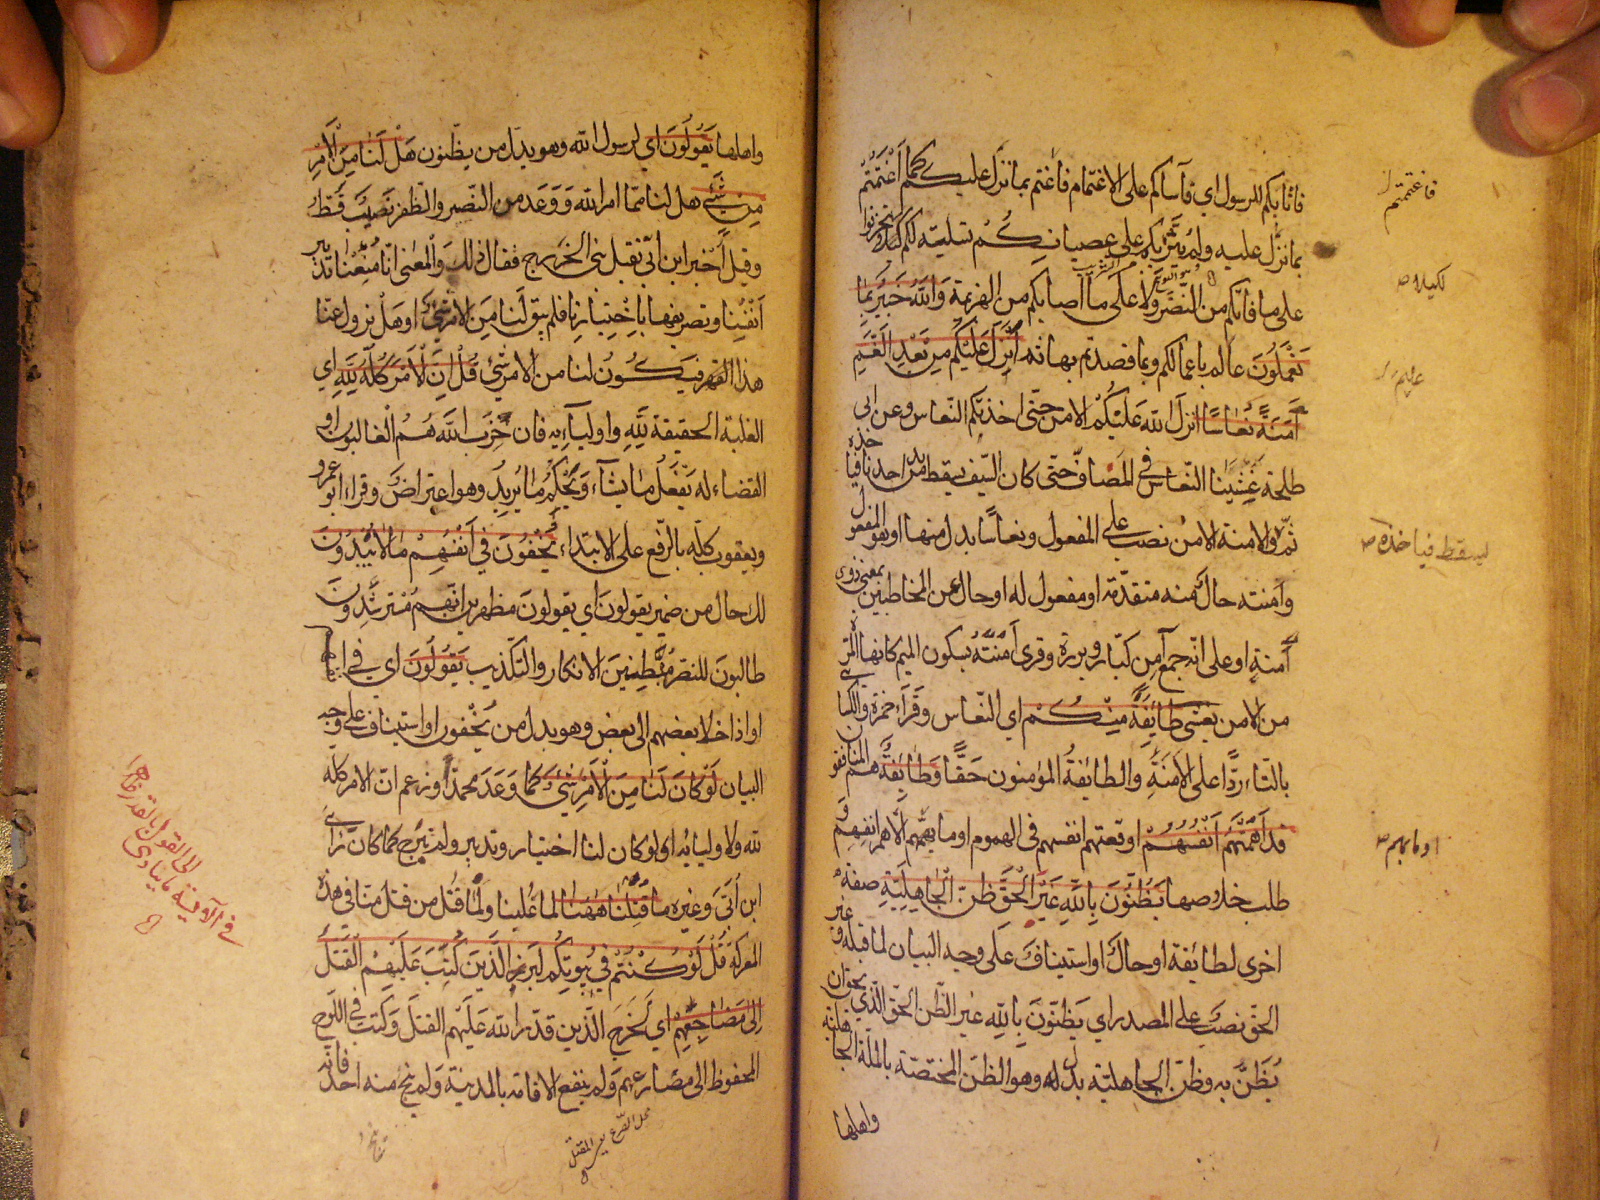 فاثابكم للرسول اي فآساكم على الاغتمام فاغتم بما نزل عليكم كما اغتممتم
بما نزل عليه ولم يثربكم على عصيانكم تسلية لكم كيلا تحزنوا
على ما فاتكم من النصر ولا على ما اصابكم من الهزيمة والله خبير بما
تعملون عالم باعمالكم وبما قصدتم بها ثم انزل عليكم من بعد الغم
امنة نعاسا انزل الله عليكم الامن حتى اخذكم النعاس وعن ابى
طلحة غشينا النعاس في المصاف حتى كان السيف يسقط من يد احدنا فياخذه
ثم والامنة الامن نصب على المفعول ونعاسا بدل منها او هو المفعول
وامنة حال منه متقدمة او مفعول له او حال من المخاطبين بمعنى ذوى
امنة او على انه جمع آمن كبار وبررة وقرى امنة بسكون الميم كانها المرة
من الامن يغشى طائفة منكم اي النعاس وقراء حمزة والكسائى
بالتاء ردا على الامنة والطائفة المؤمنون حقا وطائفة هم المنافقون
قد اهمتهم انفسهم اوقعتهم انفسهم في الهموم او ما يهمهم الا هم انفسهم و
طلب خلاصها يظنون بالله غير الحق ظن الجاهلية صفة
اخرى لطائفة او حال او استيناف على وجه البيان لما قبله و غير
الحق نصب على المصدر اي يظنون بالله غير الظن الحق الذي يحق ان
يظن به وظن الجاهلية بدل له وهو الظن المختصة بالملة الجاهلية
واهلها
فاغتممتم
لكيلا ص
عليم
يسقط فياخذه ص
او ما يهمهم ص
واهلها يقولون اي لرسول الله وهو بدل من يظنون هل لنا من الامر
من شئ هل لنا مما امر الله ووعد من النصر والظفر نصيب قط
وقيل اخبر ابن ابى بقتل بنى الخزرج فقال ذلك والمعنى انا منعنا تدبير
انفسنا وتصريفها باختيارنا فلم يبق لنا من الامر شئ او هل يزول عنا
هذا القهر فيكون لنا من الامر شئ قل ان الامر كله لله اي
الغلبة الحقيقة لله واوليائه فان حزب الله هم الغالبون او
القضاء له يفعل ما يشاء ويحكم ما يريد وهو اعتراض وقراء ابو عمرو
ويعقوب كله بالرفع على الابتداء يخفون في انفسهم ما لا يبدون
لك حال من ضمير يقولون اي يقولون مظهرين انهم مسترشدون
طالبون للنصر مبطنين الانكار والتكذيب يقولون اي في انفسهم
او اذا خلا بعضهم الى بعض وهو بدل من يخفون او استيناف على وجه
البيان لو كان لنا من الامر شئ كما وعد محمد او زعم ان الامر كله
لله ولاوليائه او لو كان لنا اختيار وتدبير ولم نبرح كما كان راى
ابن ابى وغيره ما قتلنا ههنا لما غلبنا ولما قتل من قتل منا في هذه
المعركة قل لو كنتم في بيوتكم لبرز الذين كتب عليهم القتل
الى مضاجعهم اي لخرج الذين قدر الله عليهم القتل وكتب في اللوح
المحفوظ الى مصارعهم ولم ينفع الاقامة بالمدينة ولم ينج منه احد فانه
في الآية ما ينادى